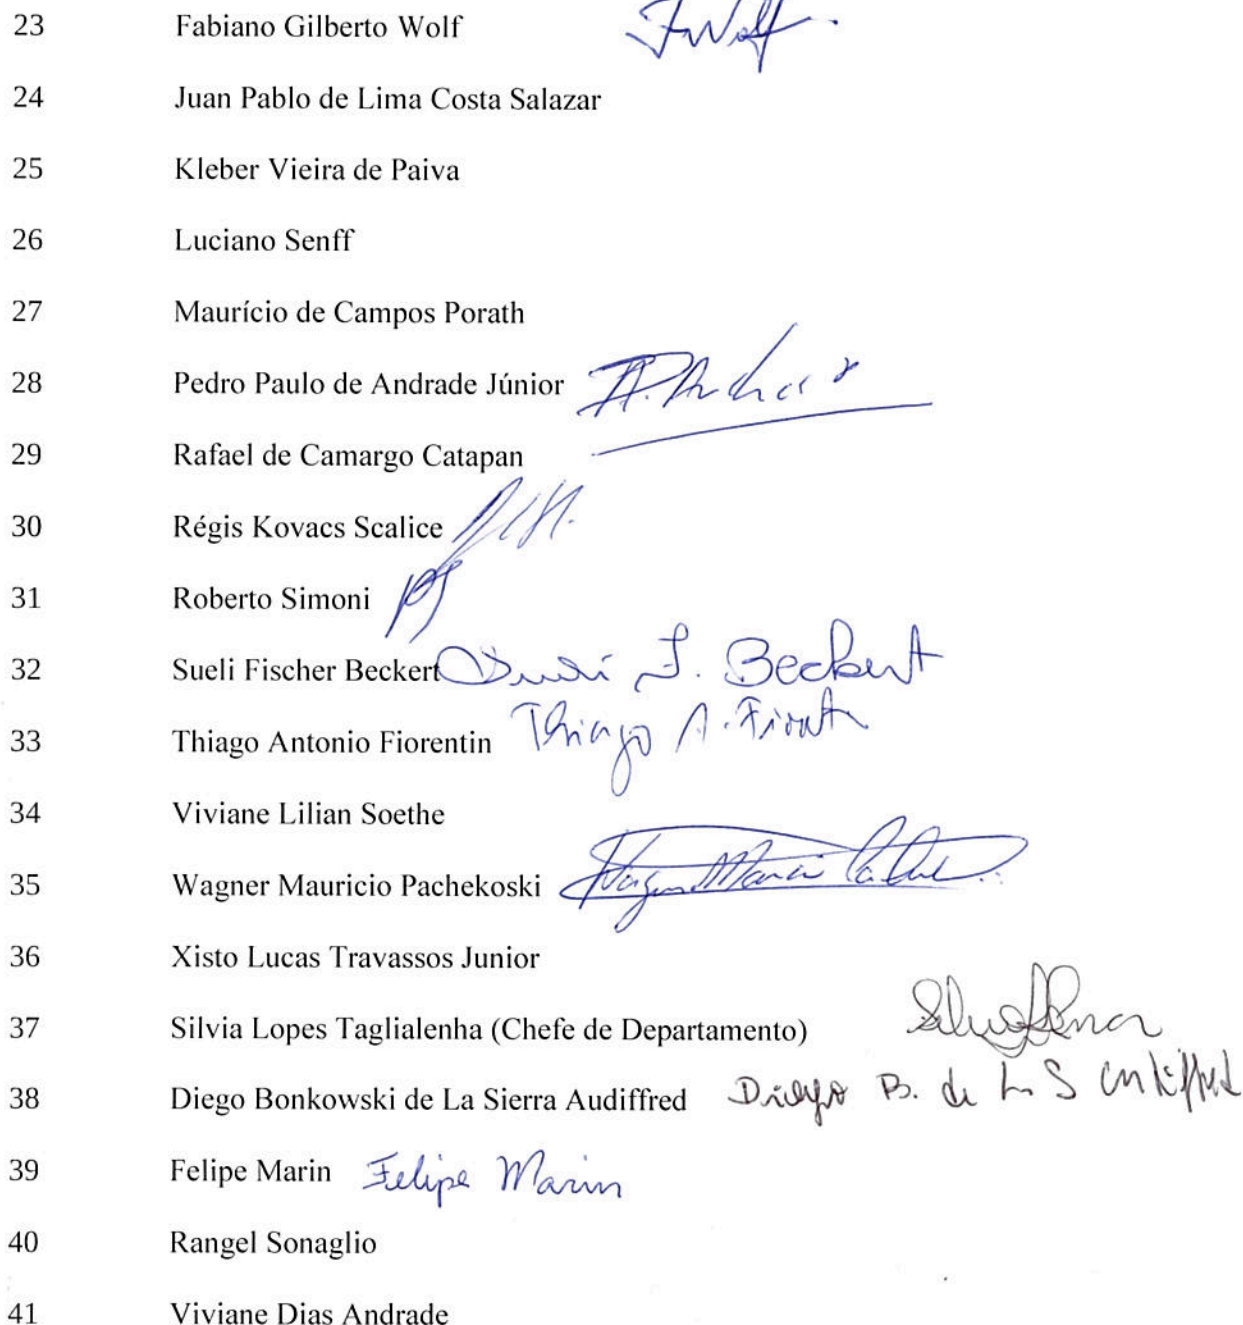 23 Fabiano Gilberto Wolf FWolf
24 Juan Pablo de Lima Costa Salazar
25 Kleber Vieira de Paiva
26 Luciano Senff
27 Maurício de Campos Porath
28 Pedro Paulo de Andrade Júnior
29 Rafael de Camargo Catapan
30 Régis Kovacs Scalice
31 Roberto Simoni
32 Sueli Fischer Beckert Sueli F. Beckert
33 Thiago Antonio Fiorentin Thiago A.
34 Viviane Lilian Soethe
35 Wagner Mauricio Pachekoski
36 Xisto Lucas Travassos Junior
37 Silvia Lopes Taglialenha (Chefe de Departamento)
38 Diego Bonkowski de La Sierra Audiffred Diego B. de La S
39 Felipe Marin Felipe Marin
40 Rangel Sonaglio
41 Viviane Dias Andrade